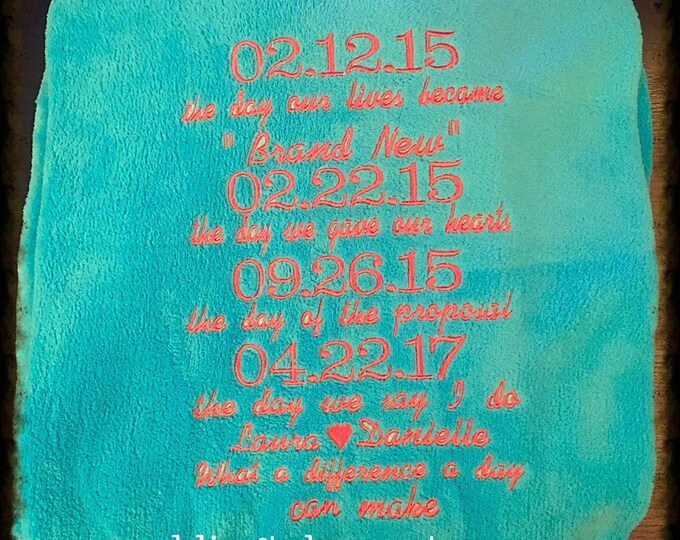 02.12.15
the day our lives became
" Brand New"
02.22.15
the day we gave our hearts
09.26.15
the day of the proposal
04.22.17
the day we say I do
Laura ♥ Danielle
What a difference a day
can make